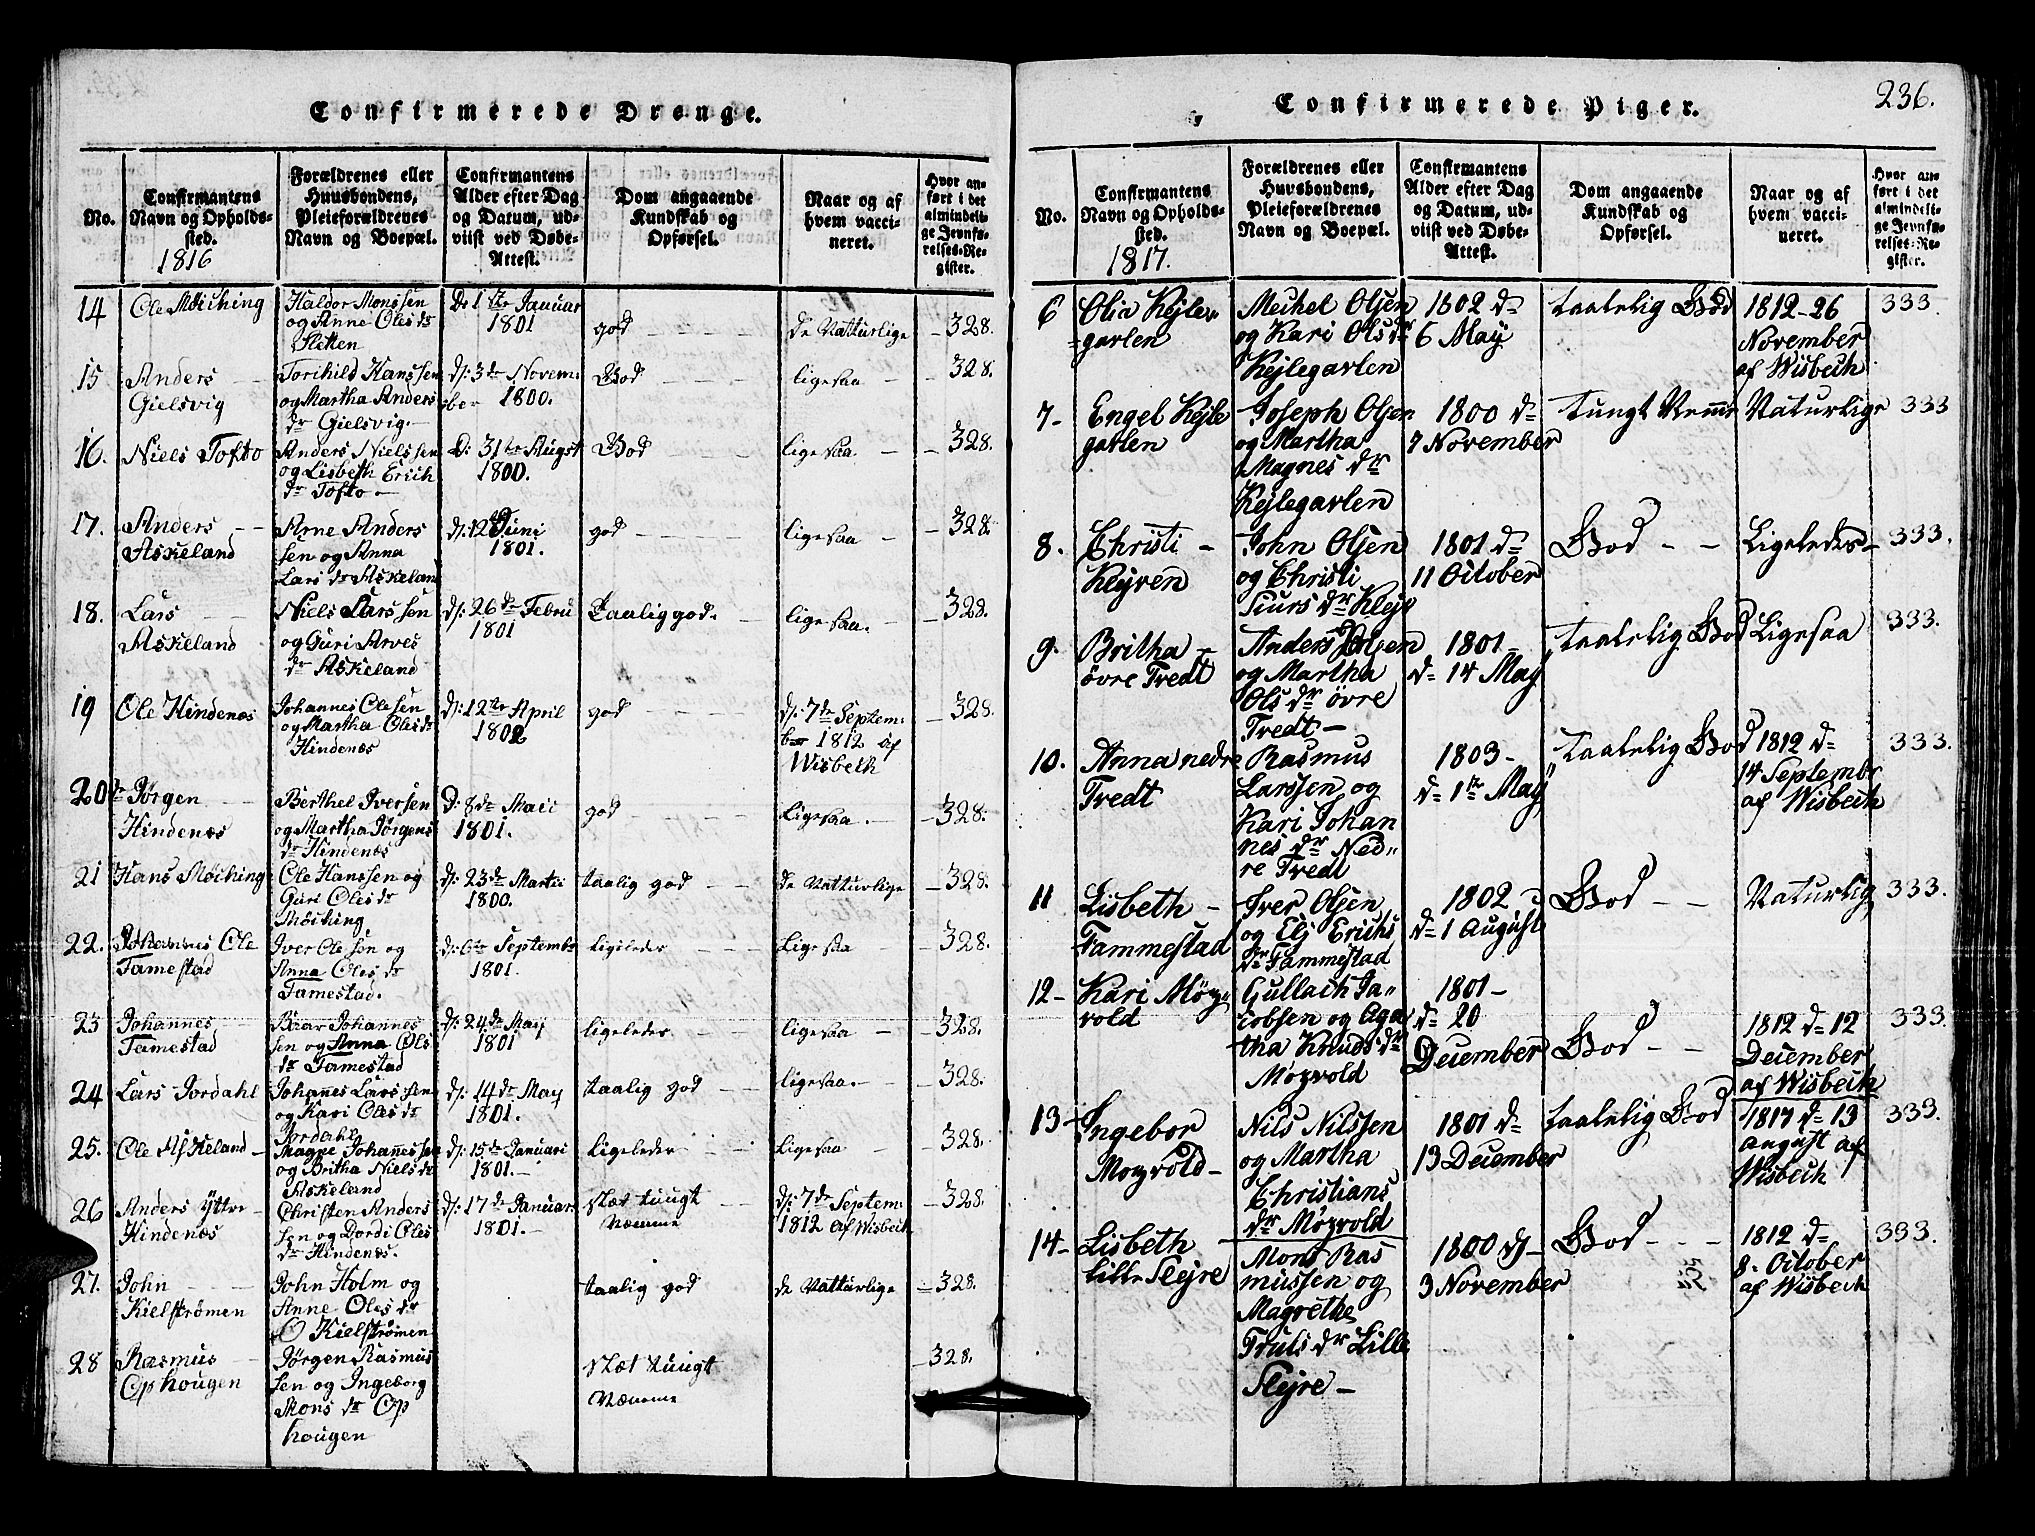 Confirmerede Drenge.
No.
Confirmantens
Navn og Opholds-
sted.
1816
Forældrenes eller
Huusbondens,
Pleieforældrenes
Navn og Boepæl.
Confirmantens
Alder efter Dag
og Datum, ud-
viist ved Døbe-
Attest.
Dom angaaende
Kundskab og
Opførsel.
Naar og af
hvem vacci-
neret.
Hvor an-
ført i det
almindeli-
ge Jevnfø-
relses-Re-
gister.
14 Ole Møiching
Haldor Monssen
og Anne Oles dr
Sletten
D: 1ste Januar
1801
god
de Natturlige
328.
15 Anders
Gielsvig
Torchild Hanssen
og Martha Anders
dr Gielsvig.
d: 3de Novem-
ber 1800.
God
ligesaa
328.
16. Niels Tofto
Anders Nielssen
og Lisbeth Erich
dr Tofto
D: 31te August
1800.
God
ligesaa.
328.
17. Anders
Askeland
Arne Anders
sen og Anna
Lars dr Askeland
d: 12 Juni
1801.
god
ligesaa
328.
18. Lars
Askeland
Niels Larssen
og Guri Arves
dr Askeland
d: 26de Febru
1801
Taalig god.
ligesaa.
328.
19 Ole Hindenæs
Johannes Olesen
og Martha Oles dr
Hindenæs
d: 12te April
1802
god
d: 7de Septem-
ber 1812 af
Wisbeth
328.
20 Jørgen
Hindenæs
Berthel Iversen
og Martha Jørgens
dr Hindenæs
D: 8de Maii
1801.
god
ligesaa.
328.
21 Hans Møiching
Ole Hanssen og
Guri Oles dr
Møiching
d: 23de Martii
1800.
taalig god
de Natturlige
328.
22. Johannes Ole
Tamestad
Iver Olesen og
Anna Oles dr
Tamestad.
d: 6te Septembr
1801.
ligeledes
ligesaa
328.
23 Johannes
Tamestad
Baar Johannes
sen og Anna Ols
dr Tamestad
d: 24de May
1801
ligeledes
ligesaa
328.
24 Lars Jordahl
Johannes Larssen
og Kari Oles dr
Jordahl
d: 14de May
1801.
taalig god
ligesaa.
328.
25. Ole Askeland
Magne Johannessen
og Britha Niels dr
Askeland
d: 15de Januari
1801.
ligeledes
ligesaa
328.
26 Anders Ytter
Hindenæs
Christen Anders
sen og Dordi Oles
dr Hindenæs.
d: 17de Januar
1801.
slet tungt
Næmme
d: 7de Septem-
1812 af Wisbech
328.
27. John
Kielstrømen
John Holm og
Anne Oles dr
Kielstrømen
taalig god
de Natturlige
328.
28 Rasmus
Ophougen
Jørgen Rasmus
sen og Ingeborg
Mons dr Op
hougen
slet tungt
Næmme
328.
Confirmerede Piger.
236.
No.
Confirmantens
Navn og Opholds-
sted.
1817.
Forældrenes eller
Huusbondens,
Pleieforældrenes
Navn og Boepæl.
Confirmantens
Alder efter Dag
og Datum, ud-
viist ved Døbe-
Attest.
Dom angaaende
Kundskab og
Opførsel.
Naar og af
hvem vacci-
neret.
Hvor an-
ført i det
almindeli-
ge Jevnfø-
relses-Re-
gister.
6 Olia Kejle-
garlen
Meichel Olsen
og Kari Ols dr
Kejlegarlen
1802 d=
6 May
taalelig God
1812-26
November
af Wisbech
333.
7- Engel Kejle
garlen
Joseph Olsen
og Martha
Magnes dr
Kejlegarlen
1800 d=
7 November
tungt Nemme
Naturlige
333
8. Christi
Klejven
John Olsen
og Christi
Siurs dr Klejv
1801 d=
11 October
God
Ligeledes
333.
9. Britha
øvre Tredt
Anders Olsen
og Martha
Ols dr øvre
Tredt
1801
d= 14 May
taalelig God
Ligesaa
333.
10. Anna nedre
Tredt
Rasmus
Larssen og
Kari Johan
nes dr Ned-
re Tredt
1803
d= 1ste May
taalelig God
1812 d=
14 Septembr
af Wisbech
333.
11 Lisbeth
Tammestad
Iver Olsen
og Elj Erichs
dr Tammestad
1802
d= 1 August
God
Naturlig
333.
12- Kari Møg-
vold
Gullach Ja-
cobsen og Aga
tha Knuds dr
Møgvold
1801
d= 20
December
God
1812 d= 12
December
af Wisbech
333.
13- Ingebor
Mogvold
Nils Nilssen
og Martha
Christians
dr Møgvold
1801 d=
13 December
taalelig God
1817 d= 13
august af
Wisbech
333.
14- Lisbeth
lille Slejre
Mons Ras
mussen og
Magrethe
Truls dr Lille
Slejre
1800 d
3 November
God
1812 d=
8. October
af Wisbech
333.